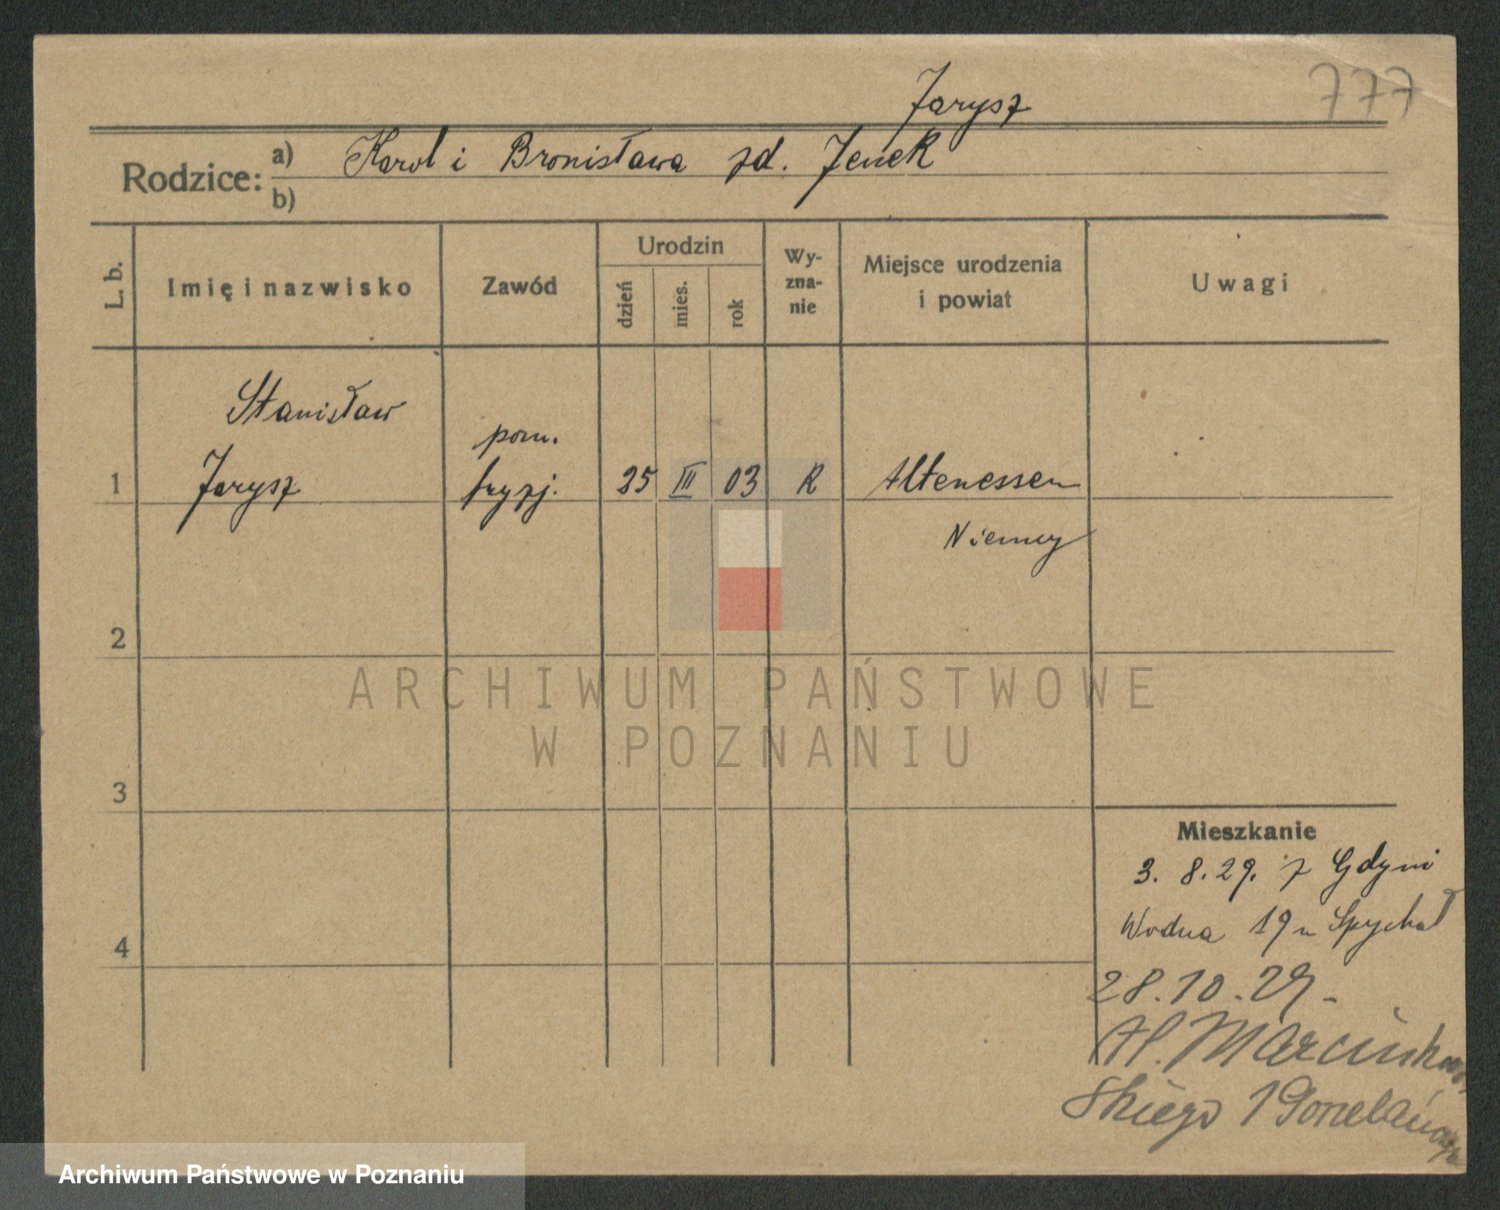 Jarysz
777
Rodzice: a) Karol i Bronisława zd. Jenek
b)
L. b.
Imię i nazwisko
Zawód
Urodzin
dzień
mies.
rok
Wy-
zna-
nie
Miejsce urodzenia
i powiat
Uwagi
Stanisław
pom.
1 Jarysz fryzj. 25 III 03 R Altenessen
Niemcy
2
3
4
Mieszkanie
3. 8. 29. z Gdyni
Wodna 19 u Spychał
28. 10. 29. -
Al. Marcinkow
skiego 1
ARCHIWUM PAŃSTWOWE
W POZNANIU
Archiwum Państwowe w Poznaniu